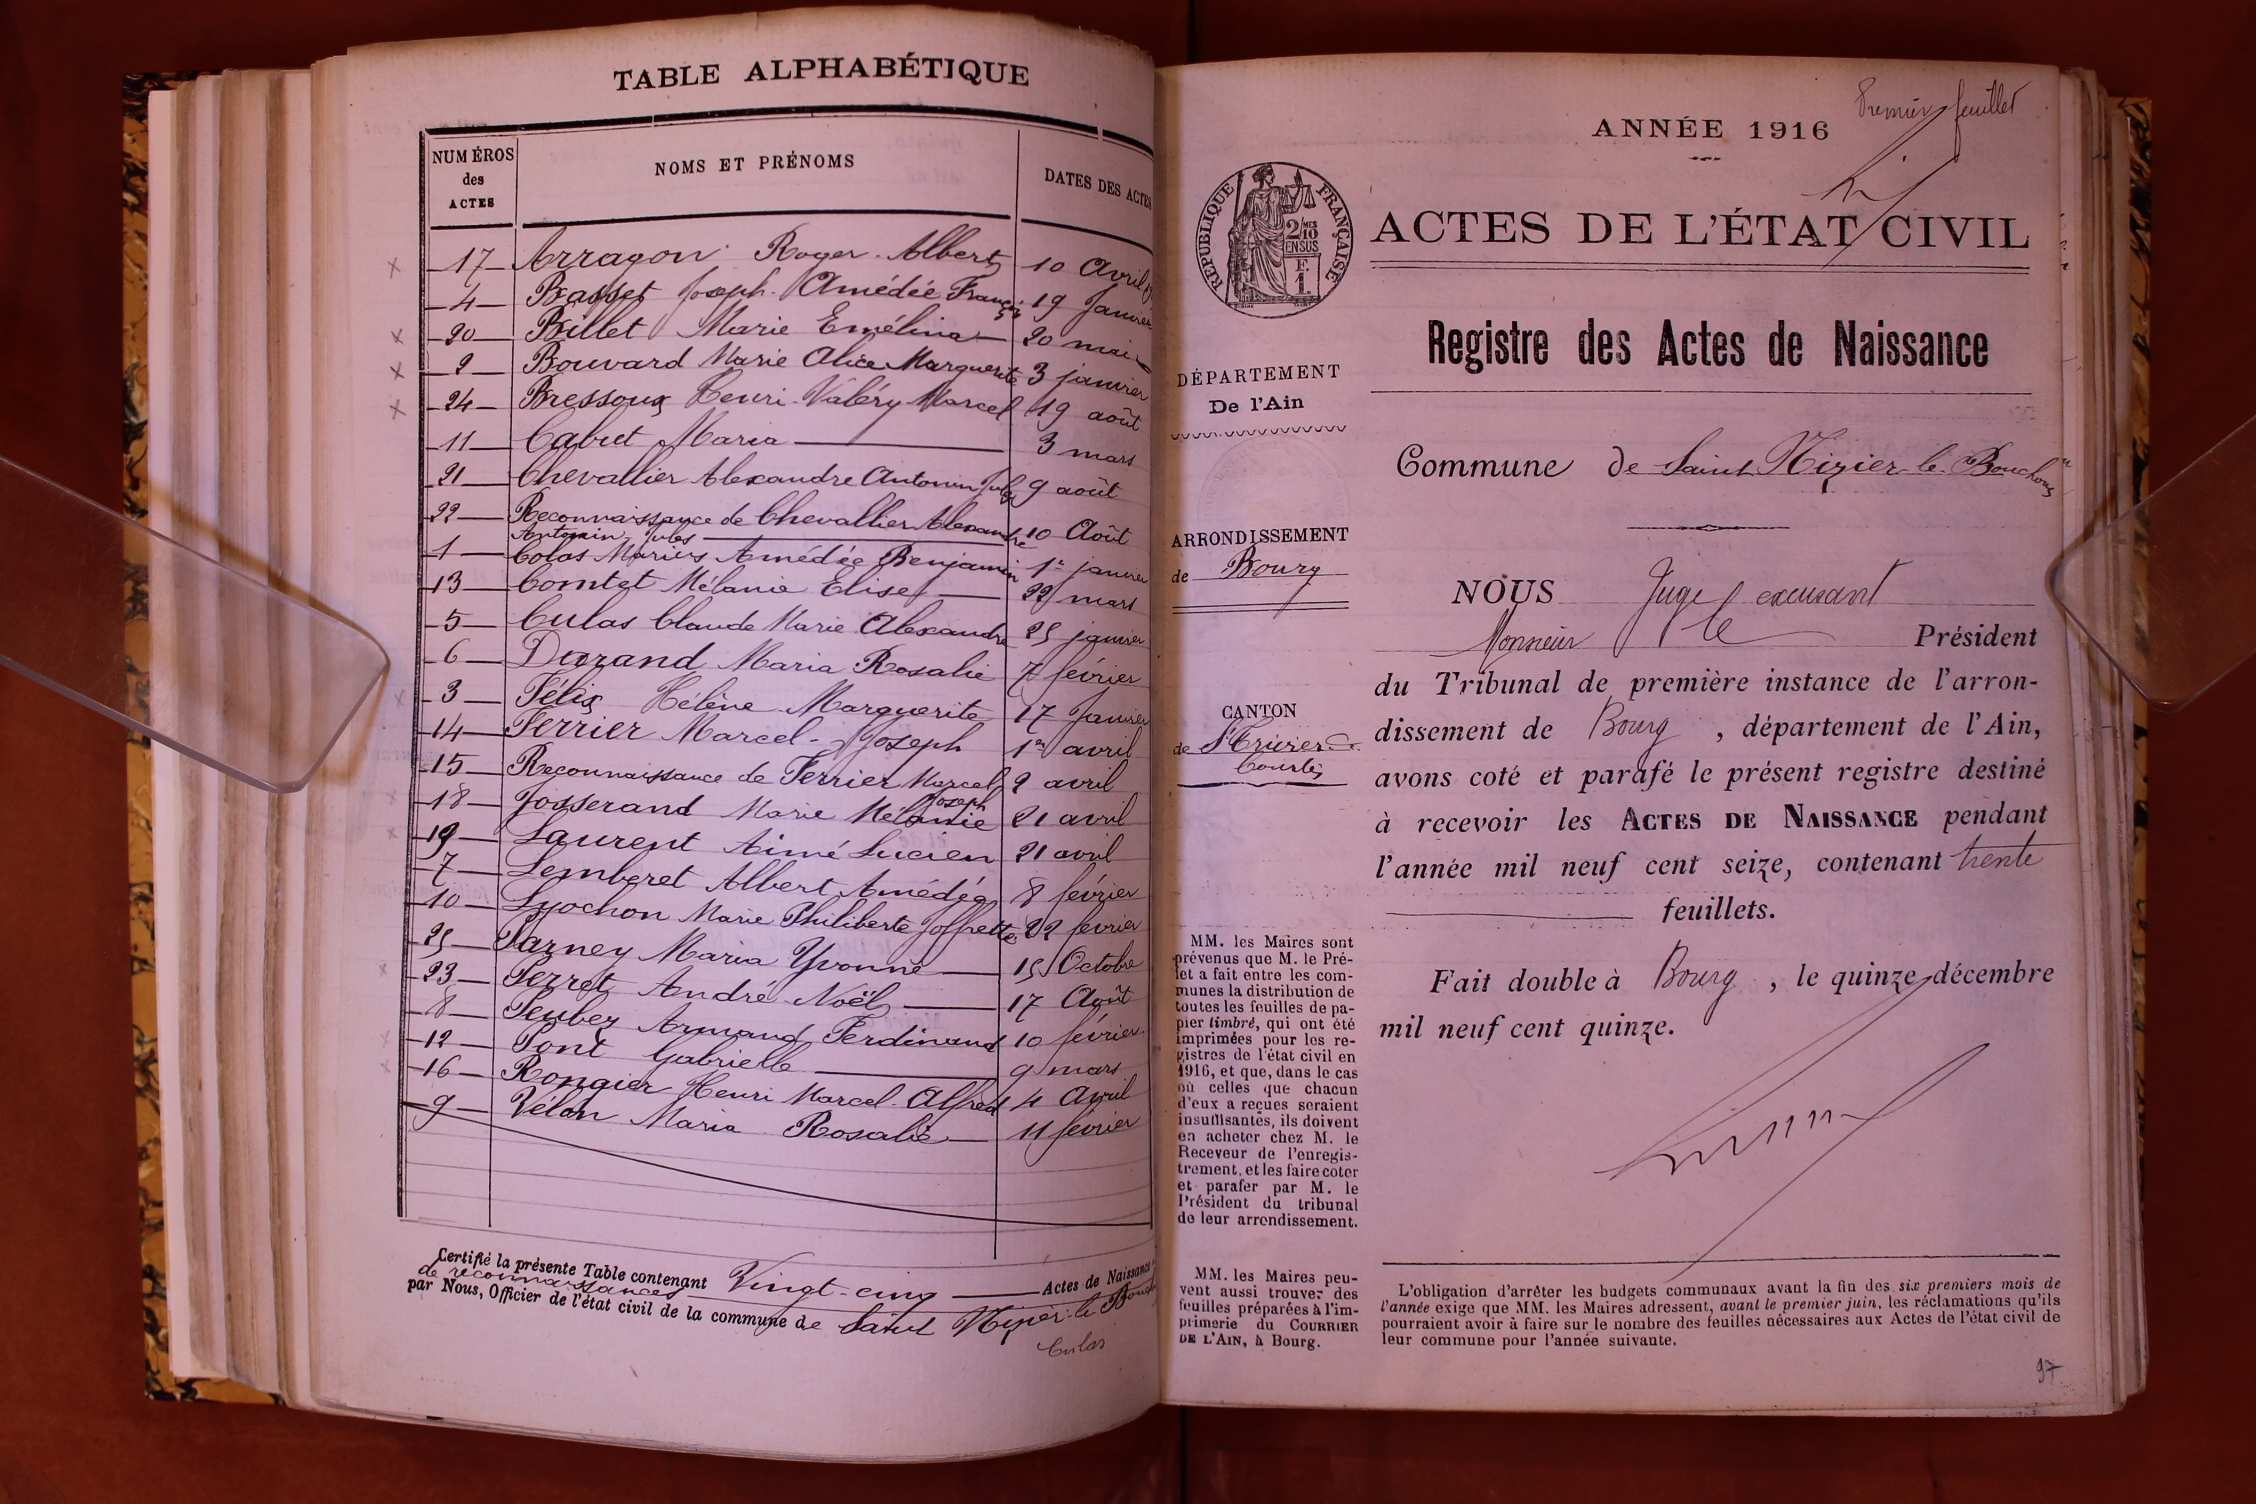 TABLE ALPHABÉTIQUE
NUMÉROS des ACTES NOMS ET PRÉNOMS DATES DES ACTES
17 Arragon Roger Albert 10 Avril
4 Basset Joseph Amédée Françis 19 Janvier
20 Billet Marie Emélina 20 mai
2 Bouvard Marie Alice Marguerite 3 janvier
24 Bressoux Henri Valéry Marcel 19 août
11 Cabut Maria 3 mars
21 Chevallier Alexandre Antonin Jules 9 août
22 Reconnaissance de Chevallier Alexandre 10 Août
Antonin Jules
1 Colas Marius Amédée Benjamin 1er janvier
13 Comtet Mélanie Elise 22 mars
5 Culas Claude Marie Alexandre 25 janvier
6 Durand Maria Rosalie 7 février
3 Félix Hélène Marguerite 17 Janvier
14 Ferrier Marcel Joseph 1er avril
15 Reconnaissance de Ferrier Marcel 2 avril
Joseph
18 Josserand Marie Mélanie 21 avril
19 Laurent Aimé Lucien 21 avril
7 Lemberet Albert Amédée 8 février
10 Lyochon Marie Philiberte Joffrette 22 février
25 Parney Maria Yvonne 15 Octobre
23 Perret André Noël 17 Août
8 Armand Ferdinand 10 février
12 Pont Gabrielle 9 mars
16 Rongier Henri Marcel Alfred 4 Avril
9 Vélon Maria Rosalie 11 février
Certifié la présente Table contenant Vingt-cinq Actes de Naissance
de reconnaissances
par Nous, Officier de l'état civil de la commune de Saint Nizier-le-Bouchoux
Culas
Premier feuillet
ANNÉE 1916
RÉPUBLIQUE FRANÇAISE
2/10 MES
EN SUS
F.
1.
ACTES DE L'ÉTAT CIVIL
Registre des Actes de Naissance
DÉPARTEMENT
De l'Ain
Commune de Saint Nizier-le-Bouchoux
ARRONDISSEMENT
de Bourg
CANTON
de St Trivier de
Courtes
NOUS Juge excusant
Monsieur le Président
du Tribunal de première instance de l'arron-
dissement de Bourg, département de l'Ain,
avons coté et parafé le présent registre destiné
à recevoir les ACTES DE NAISSANCE pendant
l'année mil neuf cent seize, contenant trente
feuillets.
Fait double à Bourg, le quinze décembre
mil neuf cent quinze.
MM. les Maires sont
prévenus que M. le Pré-
fet a fait entre les com-
munes la distribution de
toutes les feuilles de pa-
pier timbré, qui ont été
imprimées pour les re-
gistres de l'état civil en
1916, et que, dans le cas
où celles que chacun
d'eux a reçues seraient
insuffisantes, ils doivent
en acheter chez M. le
Receveur de l'enregis-
trement, et les faire coter
et parafer par M. le
Président du tribunal
de leur arrondissement.
MM. les Maires peu-
vent aussi trouver des
feuilles préparées à l'im-
primerie du COURRIER
DE L'AIN, à Bourg.
L'obligation d'arrêter les budgets communaux avant la fin des six premiers mois de
l'année exige que MM. les Maires adressent, avant le premier juin, les réclamations qu'ils
pourraient avoir à faire sur le nombre des feuilles nécessaires aux Actes de l'état civil de
leur commune pour l'année suivante.
97